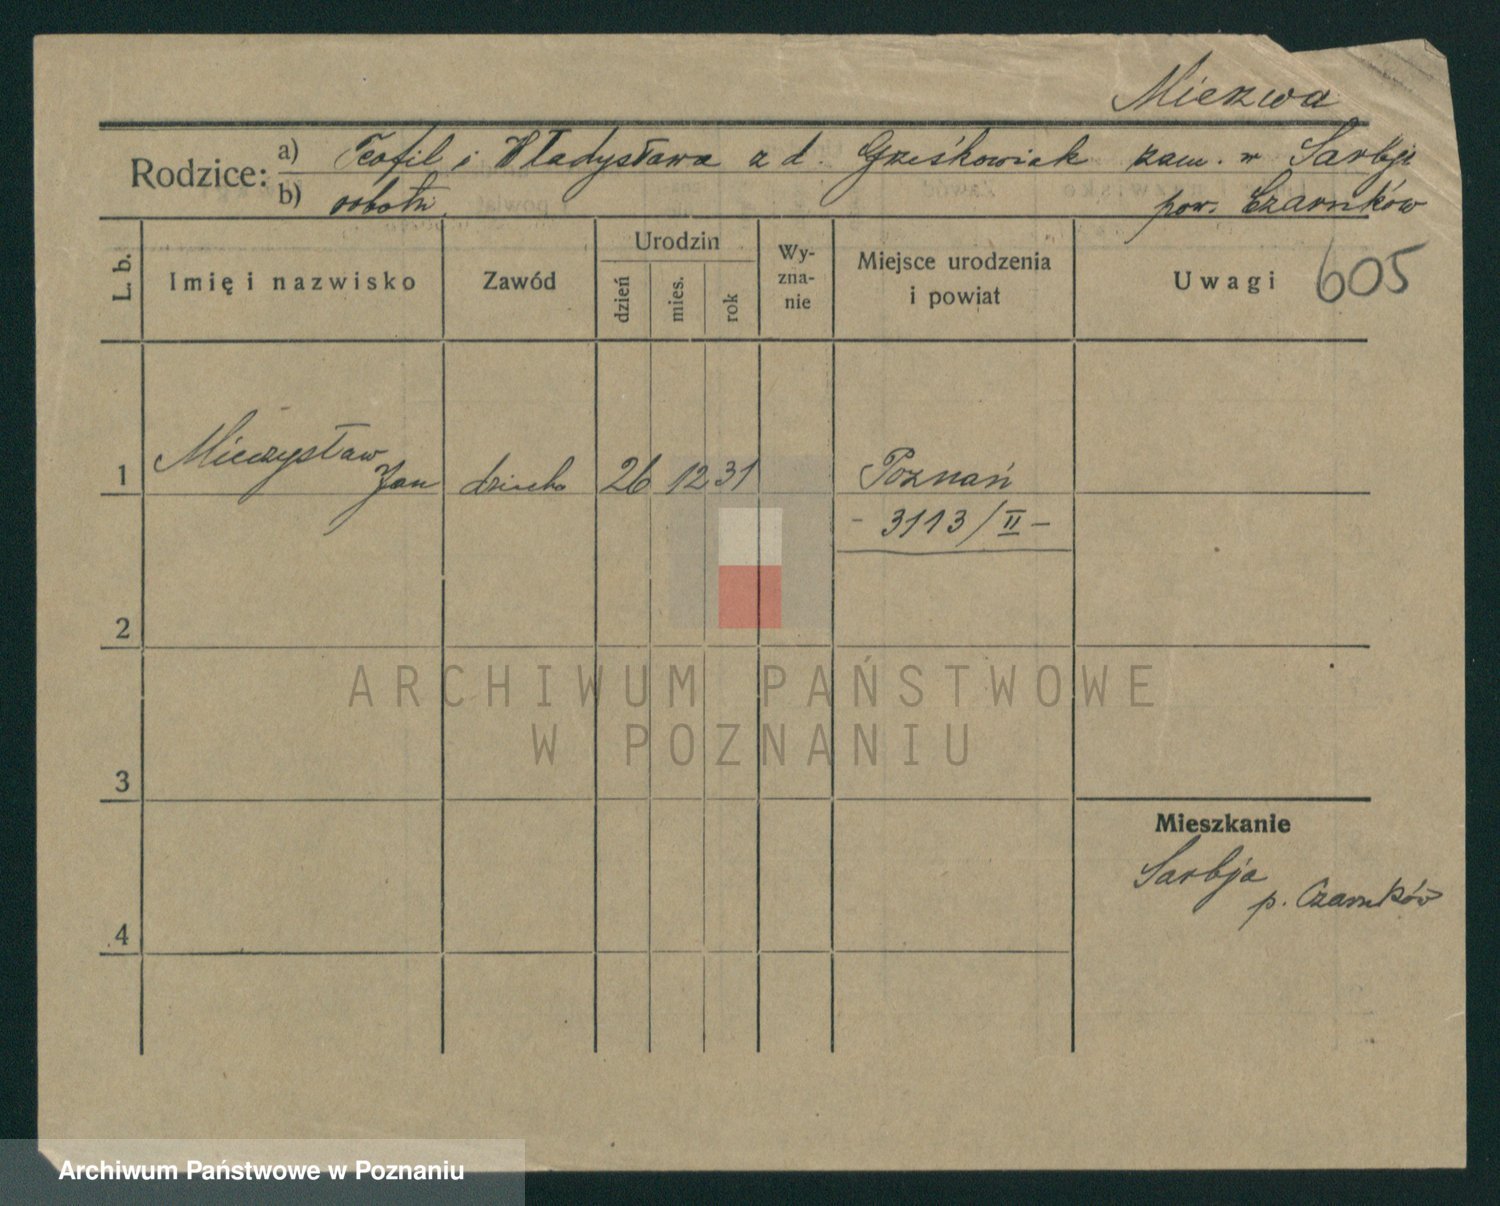 Mierzwa
Rodzice: a) Teofil i Władysława z d. Grześkowiak zam. w Sarbji
b) robotn. pow. Czarnków
L. b. Imię i nazwisko Zawód Urodzin dzień mies. rok Wy-zna-nie Miejsce urodzenia i powiat Uwagi 605
1 Mieczysław Jan dziecko 26 12 31 Poznań
- 3113/II -
2
ARCHIWUM PAŃSTWOWE
W POZNANIU
3
Mieszkanie
Sarbja
p. Czarnków
4
Archiwum Państwowe w Poznaniu